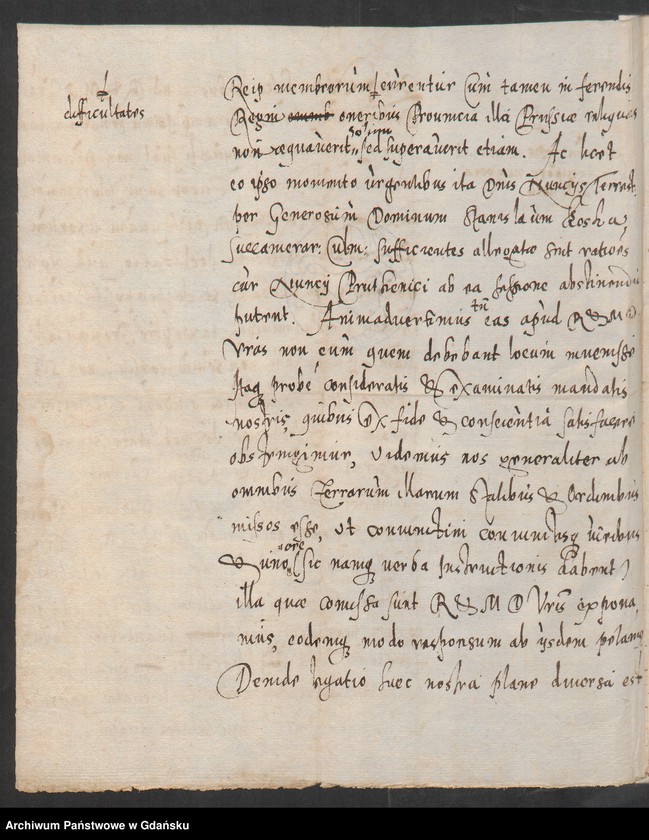 difficultates
Reip membrorum feruentur cum tamen in ferendis
Regni oneribus Prouincia illa Prussiæ reliquas
non æquauerit solum sed superauerit etiam. Ac licet
eo ipso momento urgentibus ita Dnis Nuncijs Terrest
per Generosum Dominum Stanislaum Koska
Succamerar: Culm: sufficientes allegatæ sint rationes
cur Nuncij Prutenici ab ea sessione abstinendu
putent. Animaduertimus tn eas apud R & M D
Vras non eum quem debebant locum inuenisse
Itaq probe consideratis & examinatis mandatis
nostris, quibus ex fide & conscientia satisfacere
obstringimur, videmus nos generaliter ab
omnibus Terrarum illarum Statibus & Ordinibus
missos esse, vt coniunctim coniunctisq vocibus
& uno ore (sic namq verba Instructionis habent)
illa quæ comissa sunt R & M D Vris expona,
mus, eodemq modo responsum ab ijsdem petamq
Deinde legatio hæc nostra plane diuersa est
Archiwum Państwowe w Gdańsku